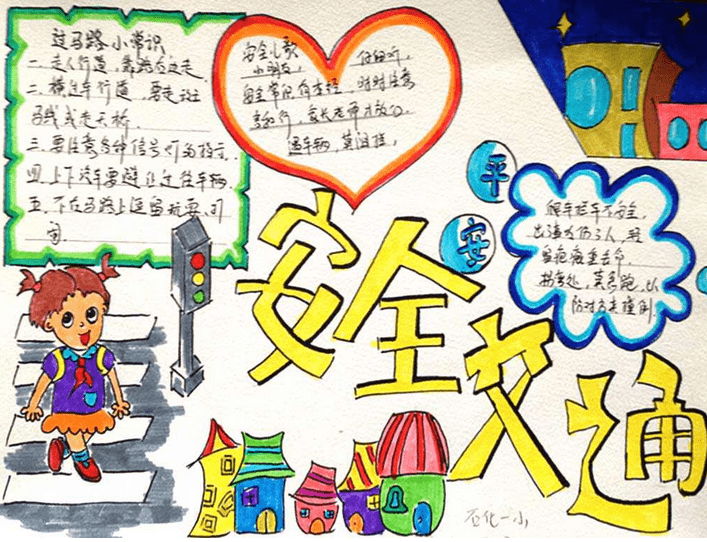 过马路小常识
一.走人行道,靠路右边走.
二.横过车行道,要走斑
马线或走天桥
三.要注意各种信号灯的指示.
四.上下汽车要避让过往车辆.
五.不在马路上逗留玩耍.打
闹.
安全儿歌
小朋友, 仔细听,
安全常识有本经, 时时注意
多,家长老师才放心.
遇车辆,莫
平
安
爬车拦车不安全,
出
命.
拐弯处,莫急跑,以
防对方来撞倒.
安全交通
石化一小